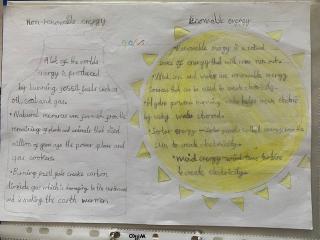 Non-renewable energy
A lot of the worlds
energy is produced
by burning fossil fuels such as
oil, coal and gas.
• Natural resources was formed from the
remaining of plants and animals that died
million of years ago the power plane and
gas cookers
• Burning fossil fuels create carbon
dioxide gas which is damaging to the environment
and is making the earth warmer.
Renewable energy
• Renewable energy is a natural
source of energy that will never run out.
wind, sun and water are renewable energy
sources that can be used to create electricity.
• Hydro power: running water helps create electric
by using water
• Solar energy - solar panels collect energy from the
sun to make electricity.
• Wind energy - wind turbine
to create electricity.